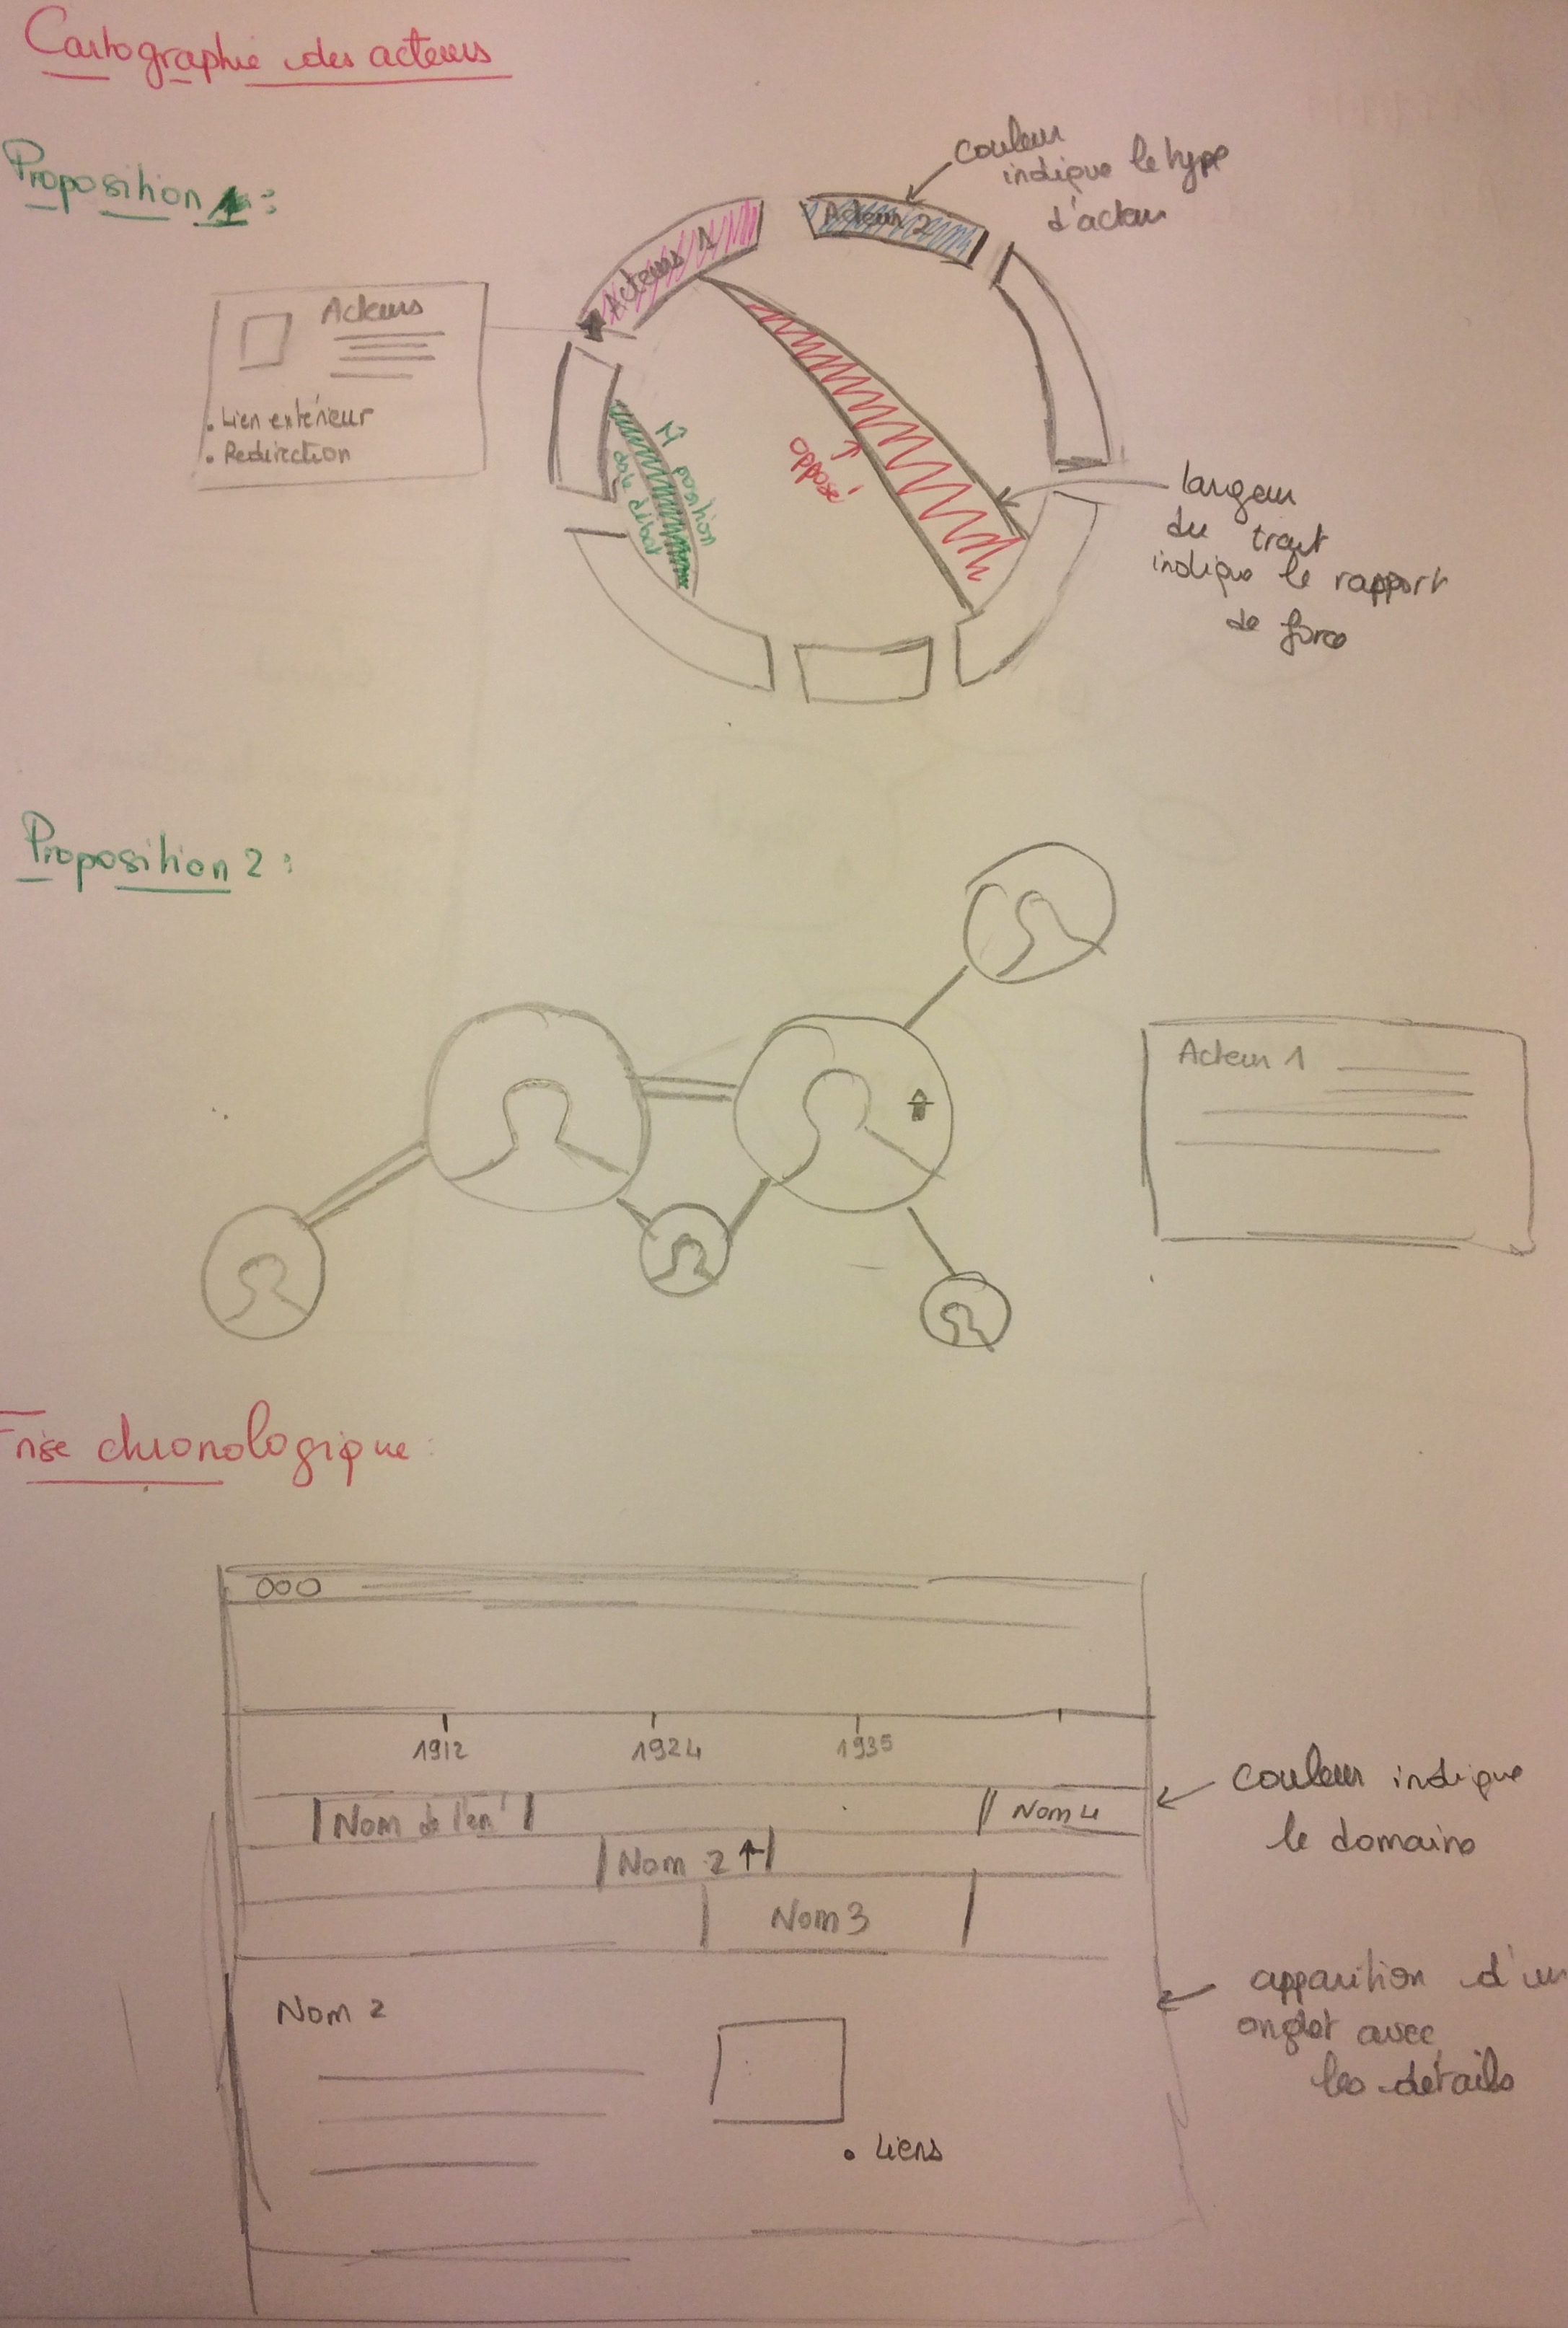 Cartographie des acteurs
Proposition 1 :
couleur
indique le type
d'acteur
Acteurs 1
Acteur 2
Acteurs
• Lien extérieur
• Redirection
M̂ position
dans débat
opposé
largeur
du trait
indique le rapport
de force
Proposition 2 :
Acteur 1
Frise chronologique :
000
1912
1924
1935
Nom de l'en'
Nom 4
Nom 2
Nom 3
couleur indique
le domaine
Nom 2
apparition d'un
onglet avec
les détails
• Liens